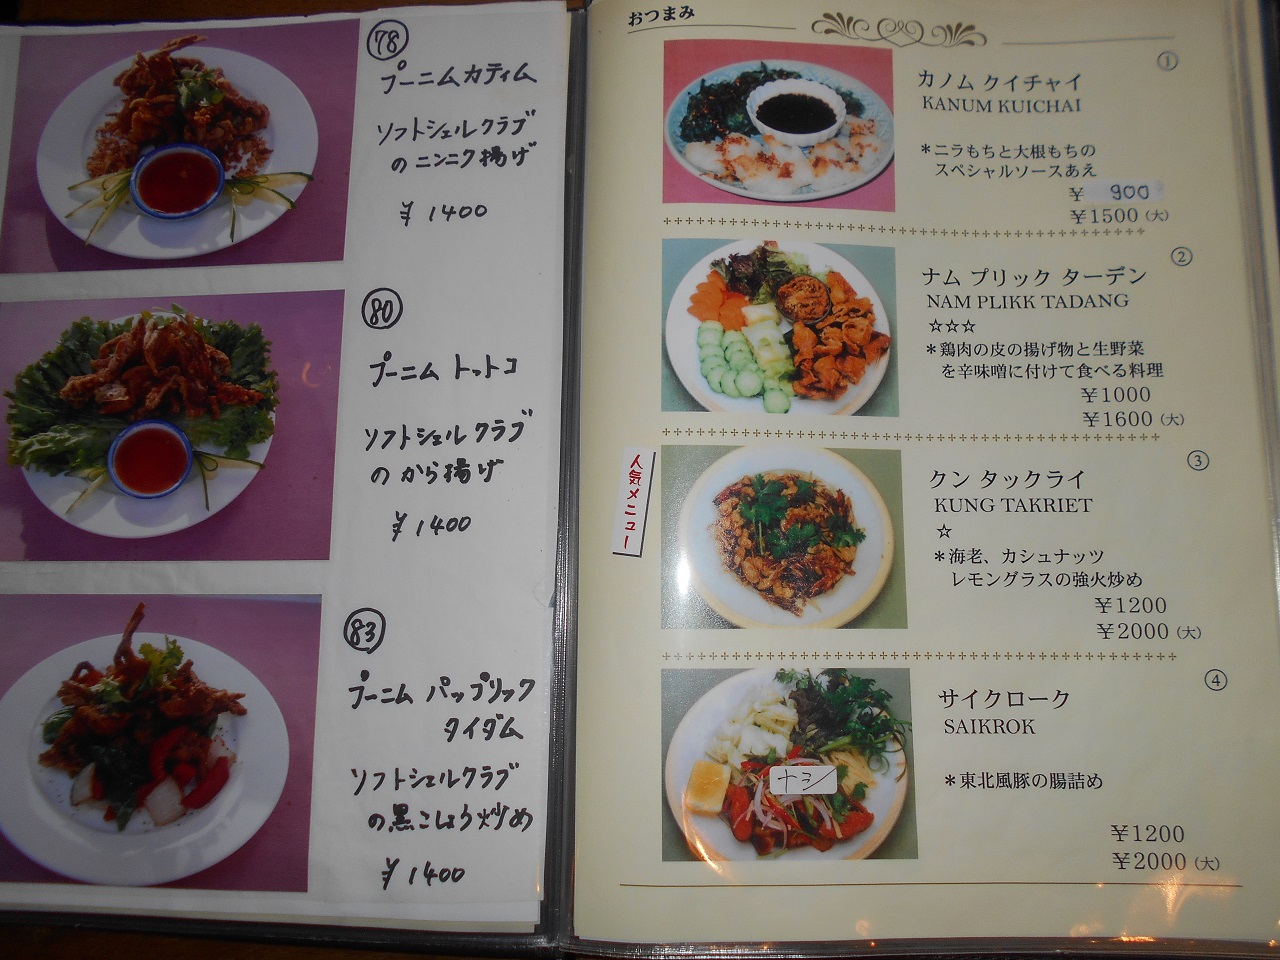 78
プーニムカティム
ソフトシェルクラブ
のニンニク揚げ
¥1400
80
プーニム トットコ
ソフトシェルクラブ
のから揚げ
¥1400
83
プーニム パップリック
タイダム
ソフトシェルクラブ
の黒こしょう炒め
¥1400
おつまみ
①
カノム クイチャイ
KANUM KUICHAI
*ニラもちと大根もちの
スペシャルソースあえ
¥ 900
¥1500(大)
②
ナム プリック ターデン
NAM PLIKK TADANG
☆☆☆
*鶏肉の皮の揚げ物と生野菜
を辛味噌に付けて食べる料理
¥1000
¥1600(大)
人気メニュー
③
クン タックライ
KUNG TAKRIET
☆
*海老、カシュナッツ
レモングラスの強火炒め
¥1200
¥2000(大)
④
サイクローク
SAIKROK
ナシ
*東北風豚の腸詰め
¥1200
¥2000(大)